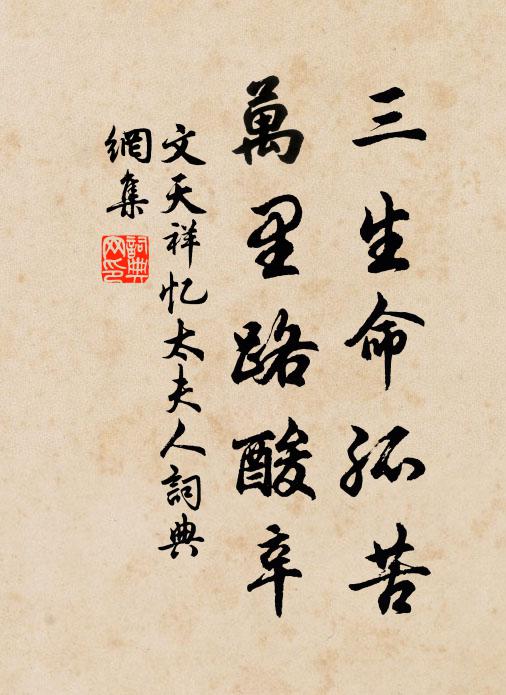 三生命孤苦
萬里路酸辛
文天祥忆太夫人詞典
網集
詞典
网印